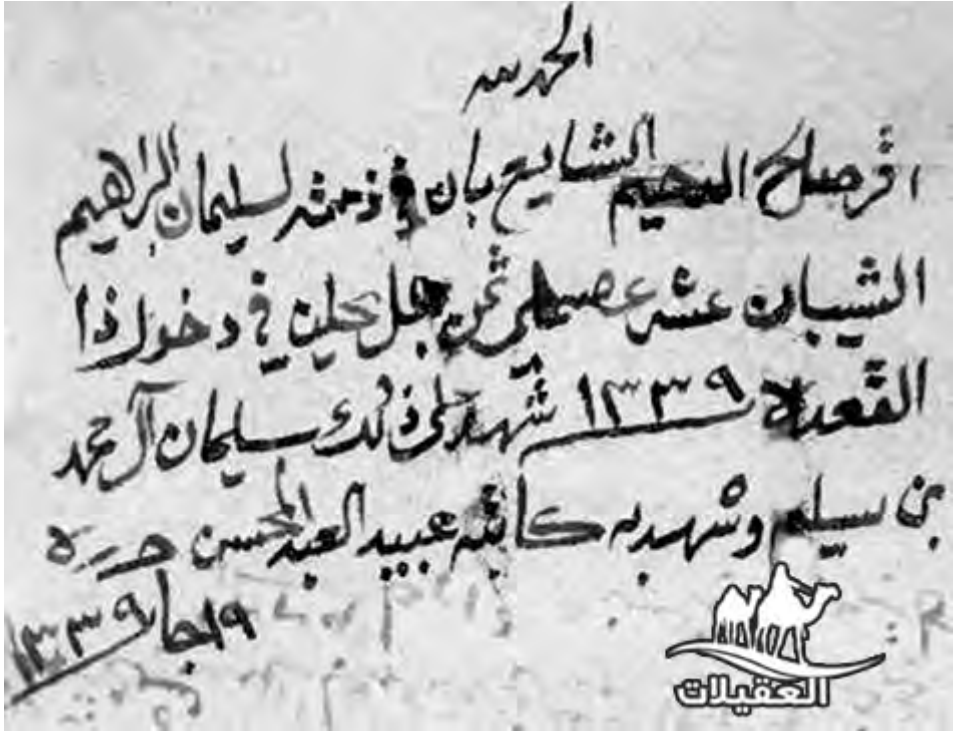 الحمد لله
اقر صالح السحيم الشايع بان في ذمته لسليمان البراهيم
الشيبان عشر ثمن جمل يحلن في دخول ذا
القعدة ١٣٣٩ شهد على ذلك سليمان آل محمد
بن سليم وشهد به كاتبه عبيد العبد المحسن حرره
١٩ جا ١٣٣٩
العقيلات